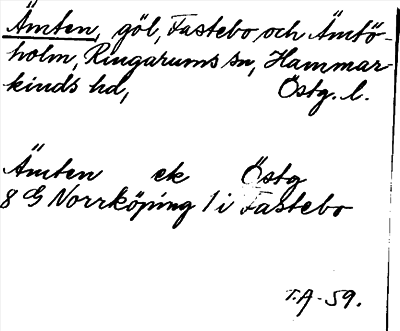 Ämten, göl, Fastebo och Ämtö-
holm, Ringarums sn, Hammar-
kinds hd, Östg. l.
Ämten ek Östg
8 G Norrköping 1 i Fastebo
T.A-59.